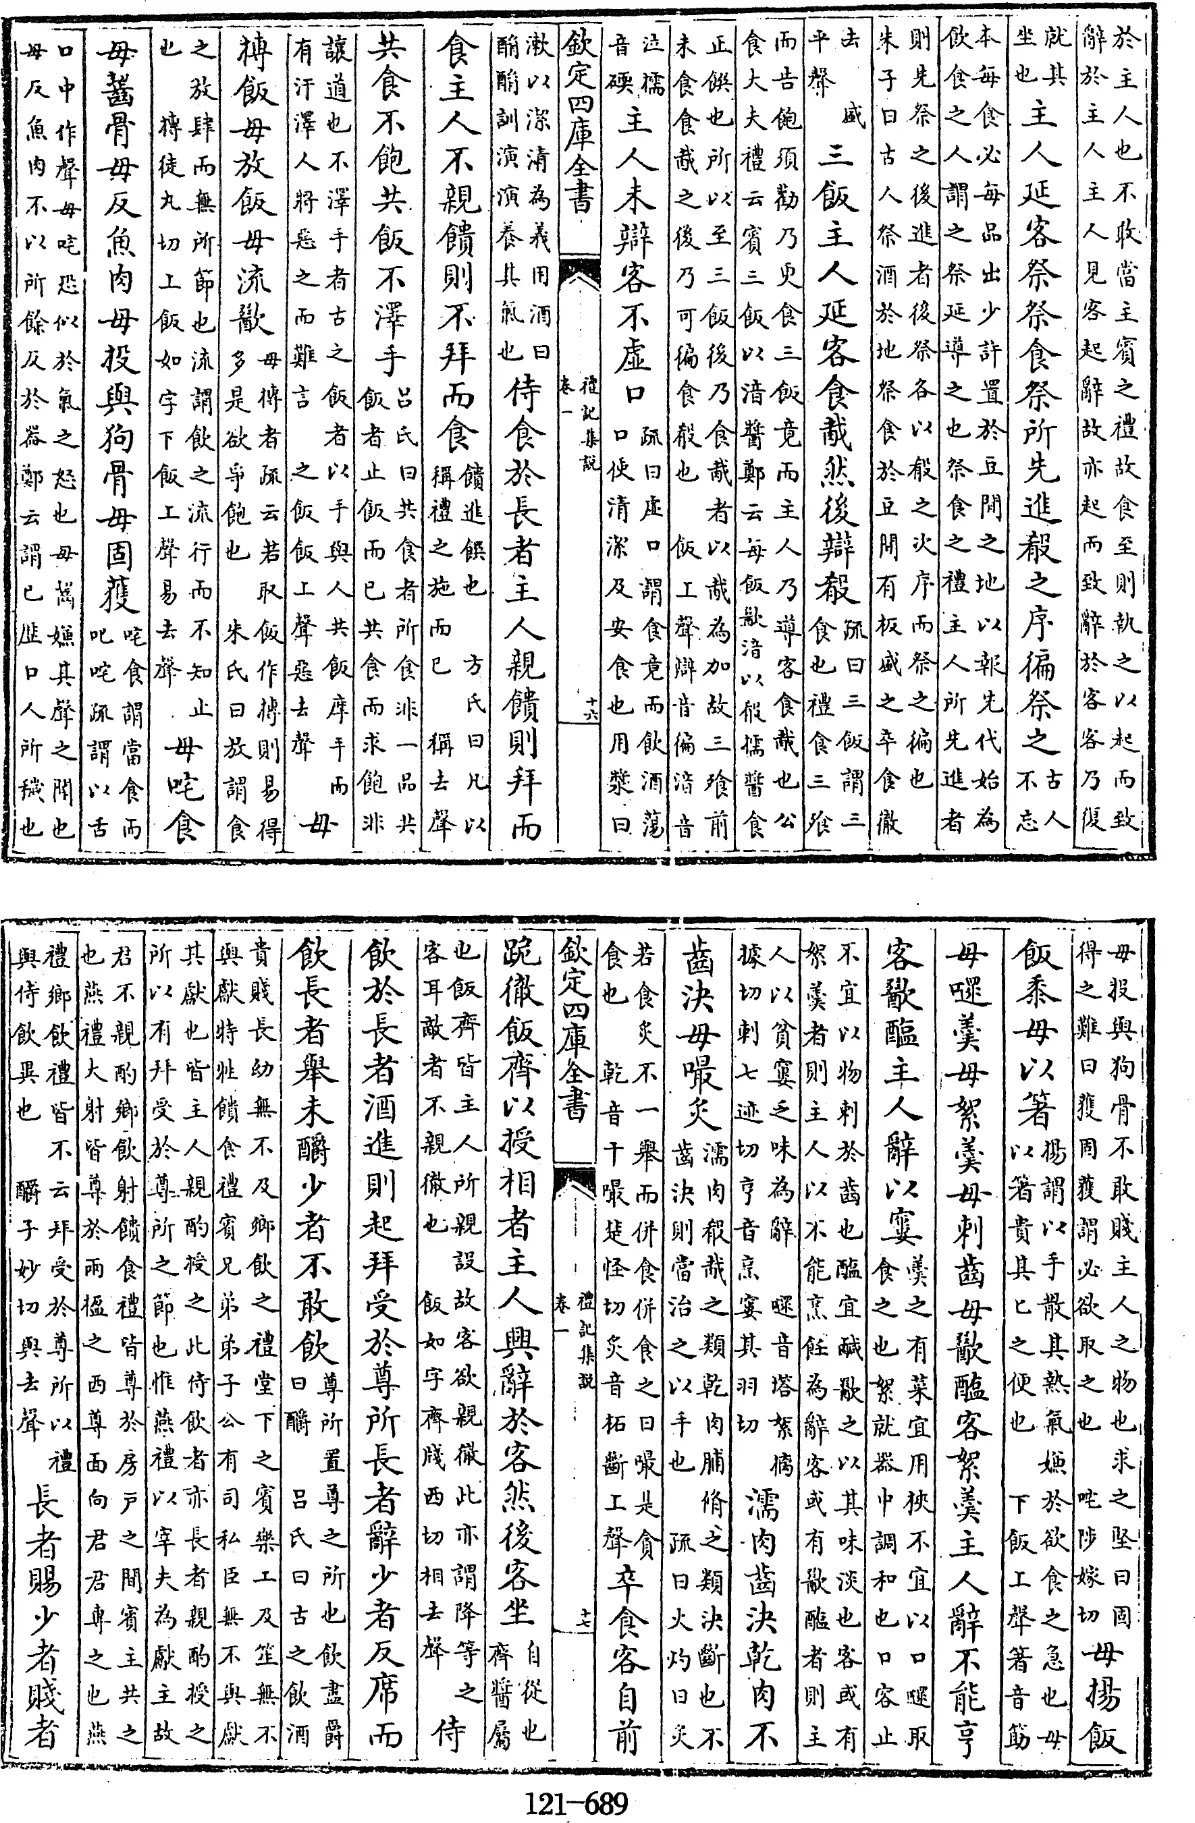 於主人也不敢當主賓之禮故食至則執之以起而致
辭於主人主人見客起辭故亦起而致辭於客客乃復
就其
坐也主人延客祭祭食祭所先進殽之序徧祭之古人
不忘
本每食必每品出少許置於豆間之地以報先代始為
飲食之人謂之祭延導之也祭食之禮主人所先進者
則先祭之後進者後祭各以殽之次序而祭之徧也
朱子曰古人祭酒於地祭食於豆間有板盛之卒食徹
去 盛
平聲三飯主人延客食胾然後辯殽疏曰三飯謂三
食也禮食三飱
而告飽須勸乃更食三飯竟而主人乃導客食胾也公
食大夫禮云賓三飯以湆醬鄭云每飯歠湆以殽擩醬食
正饌也所以至三飯後乃食胾者以胾為加故三飱前
未食食胾之後乃可徧食殽也 飯上聲辯音徧湆音
泣擩
音耎主人未辯客不虛口疏曰虛口謂食竟而飲酒蕩
口使清潔及安食也用漿曰
欽定四庫全書 禮記集說
卷一 十六
漱以潔清為義用酒曰
酳酳訓演演養其氣也侍食於長者主人親饋則拜而
食主人不親饋則不拜而食饋進饌也 方氏曰凡以
稱禮之施而已 稱去聲
共食不飽共飯不澤手呂氏曰共食者所食非一品共
飯者止飯而已共食而求飽非
讓道也不澤手者古之飯者以手與人共飯摩手而
有汗澤人將惡之而難言 之飯飯上聲惡去聲 毋
摶飯毋放飯毋流歠毋摶者疏云若取飯作摶則易得
多是欲爭飽也 朱氏曰放謂食
之放肆而無所節也流謂飲之流行而不知止
也 摶徒丸切上飯如字下飯上聲易去聲 毋咤食
毋齧骨毋反魚肉毋投與狗骨毋固獲咤食謂當食而
叱咤疏謂以舌
口中作聲毋咤恐似於氣之怒也毋齧嫌其聲之聞也
毋反魚肉不以所餘反於器鄭云謂已歷口人所穢也
毋投與狗骨不敢賤主人之物也求之堅曰固
得之難曰獲固獲謂必欲取之也 咤陟嫁切 毋揚飯
飯黍毋以箸揚謂以手散其熱氣嫌於欲食之急也毋
以箸貴其匕之便也 下飯上聲箸音筯
毋嚃羹毋絮羹毋刺齒毋歠醢客絮羹主人辭不能亨
客歠醢主人辭以窶羹之有菜宜用梜不宜以口嚃取
食之也絮就器中調和也口容止
不宜以物刺於齒也醢宜鹹歠之以其味淡也客或有
絮羹者則主人以不能烹飪為辭客或有歠醢者則主
人以貧窶乏味為辭 嚃音塔絮摛
據切刺七迹切亨音烹窶其羽切 濡肉齒決乾肉不
齒決毋嘬炙濡肉殽胾之類乾肉脯脩之類決斷也不
齒決則當治之以手也 疏曰火灼曰炙
若食炙不一舉而併食併食之曰嘬是貪
食也 乾音干嘬楚怪切炙音柘斷上聲 卒食客自前
欽定四庫全書 禮記集說
卷一 十七
跪徹飯齊以授相者主人興辭於客然後客坐自從也
齊醬屬
也飯齊皆主人所親設故客欲親徹此亦謂降等之
客耳敵者不親徹也 飯如字齊牋西切相去聲 侍
飲於長者酒進則起拜受於尊所長者辭少者反席而
飲長者舉未釂少者不敢飲尊所置尊之所也飲盡爵
曰釂 呂氏曰古之飲酒
貴賤長幼無不及鄉飲之禮堂下之賓樂工及笙無不
與獻特牲饋食禮賓兄弟弟子公有司私臣無不與獻
其獻也皆主人親酌授之此侍飲者亦長者親酌授之
所以有拜受於尊所之節也惟燕禮以宰夫為獻主故
君不親酌鄉飲射饋食禮皆尊於房戶之間賓主共之
也燕禮大射皆尊於兩楹之西尊面向君君專之也燕
禮鄉飲禮皆不云拜受於尊所以禮
與侍飲異也 釂子妙切與去聲 長者賜少者賤者
121-689